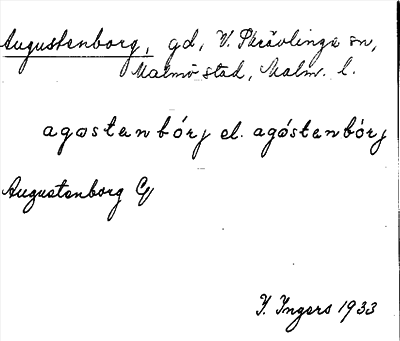 Augustenborg, gd, V. Skrävlinge sn,
Malmö stad, Malm. l.
agostenbórj el. agóstenbórj
Augustenborg G
I. Ingers 1933